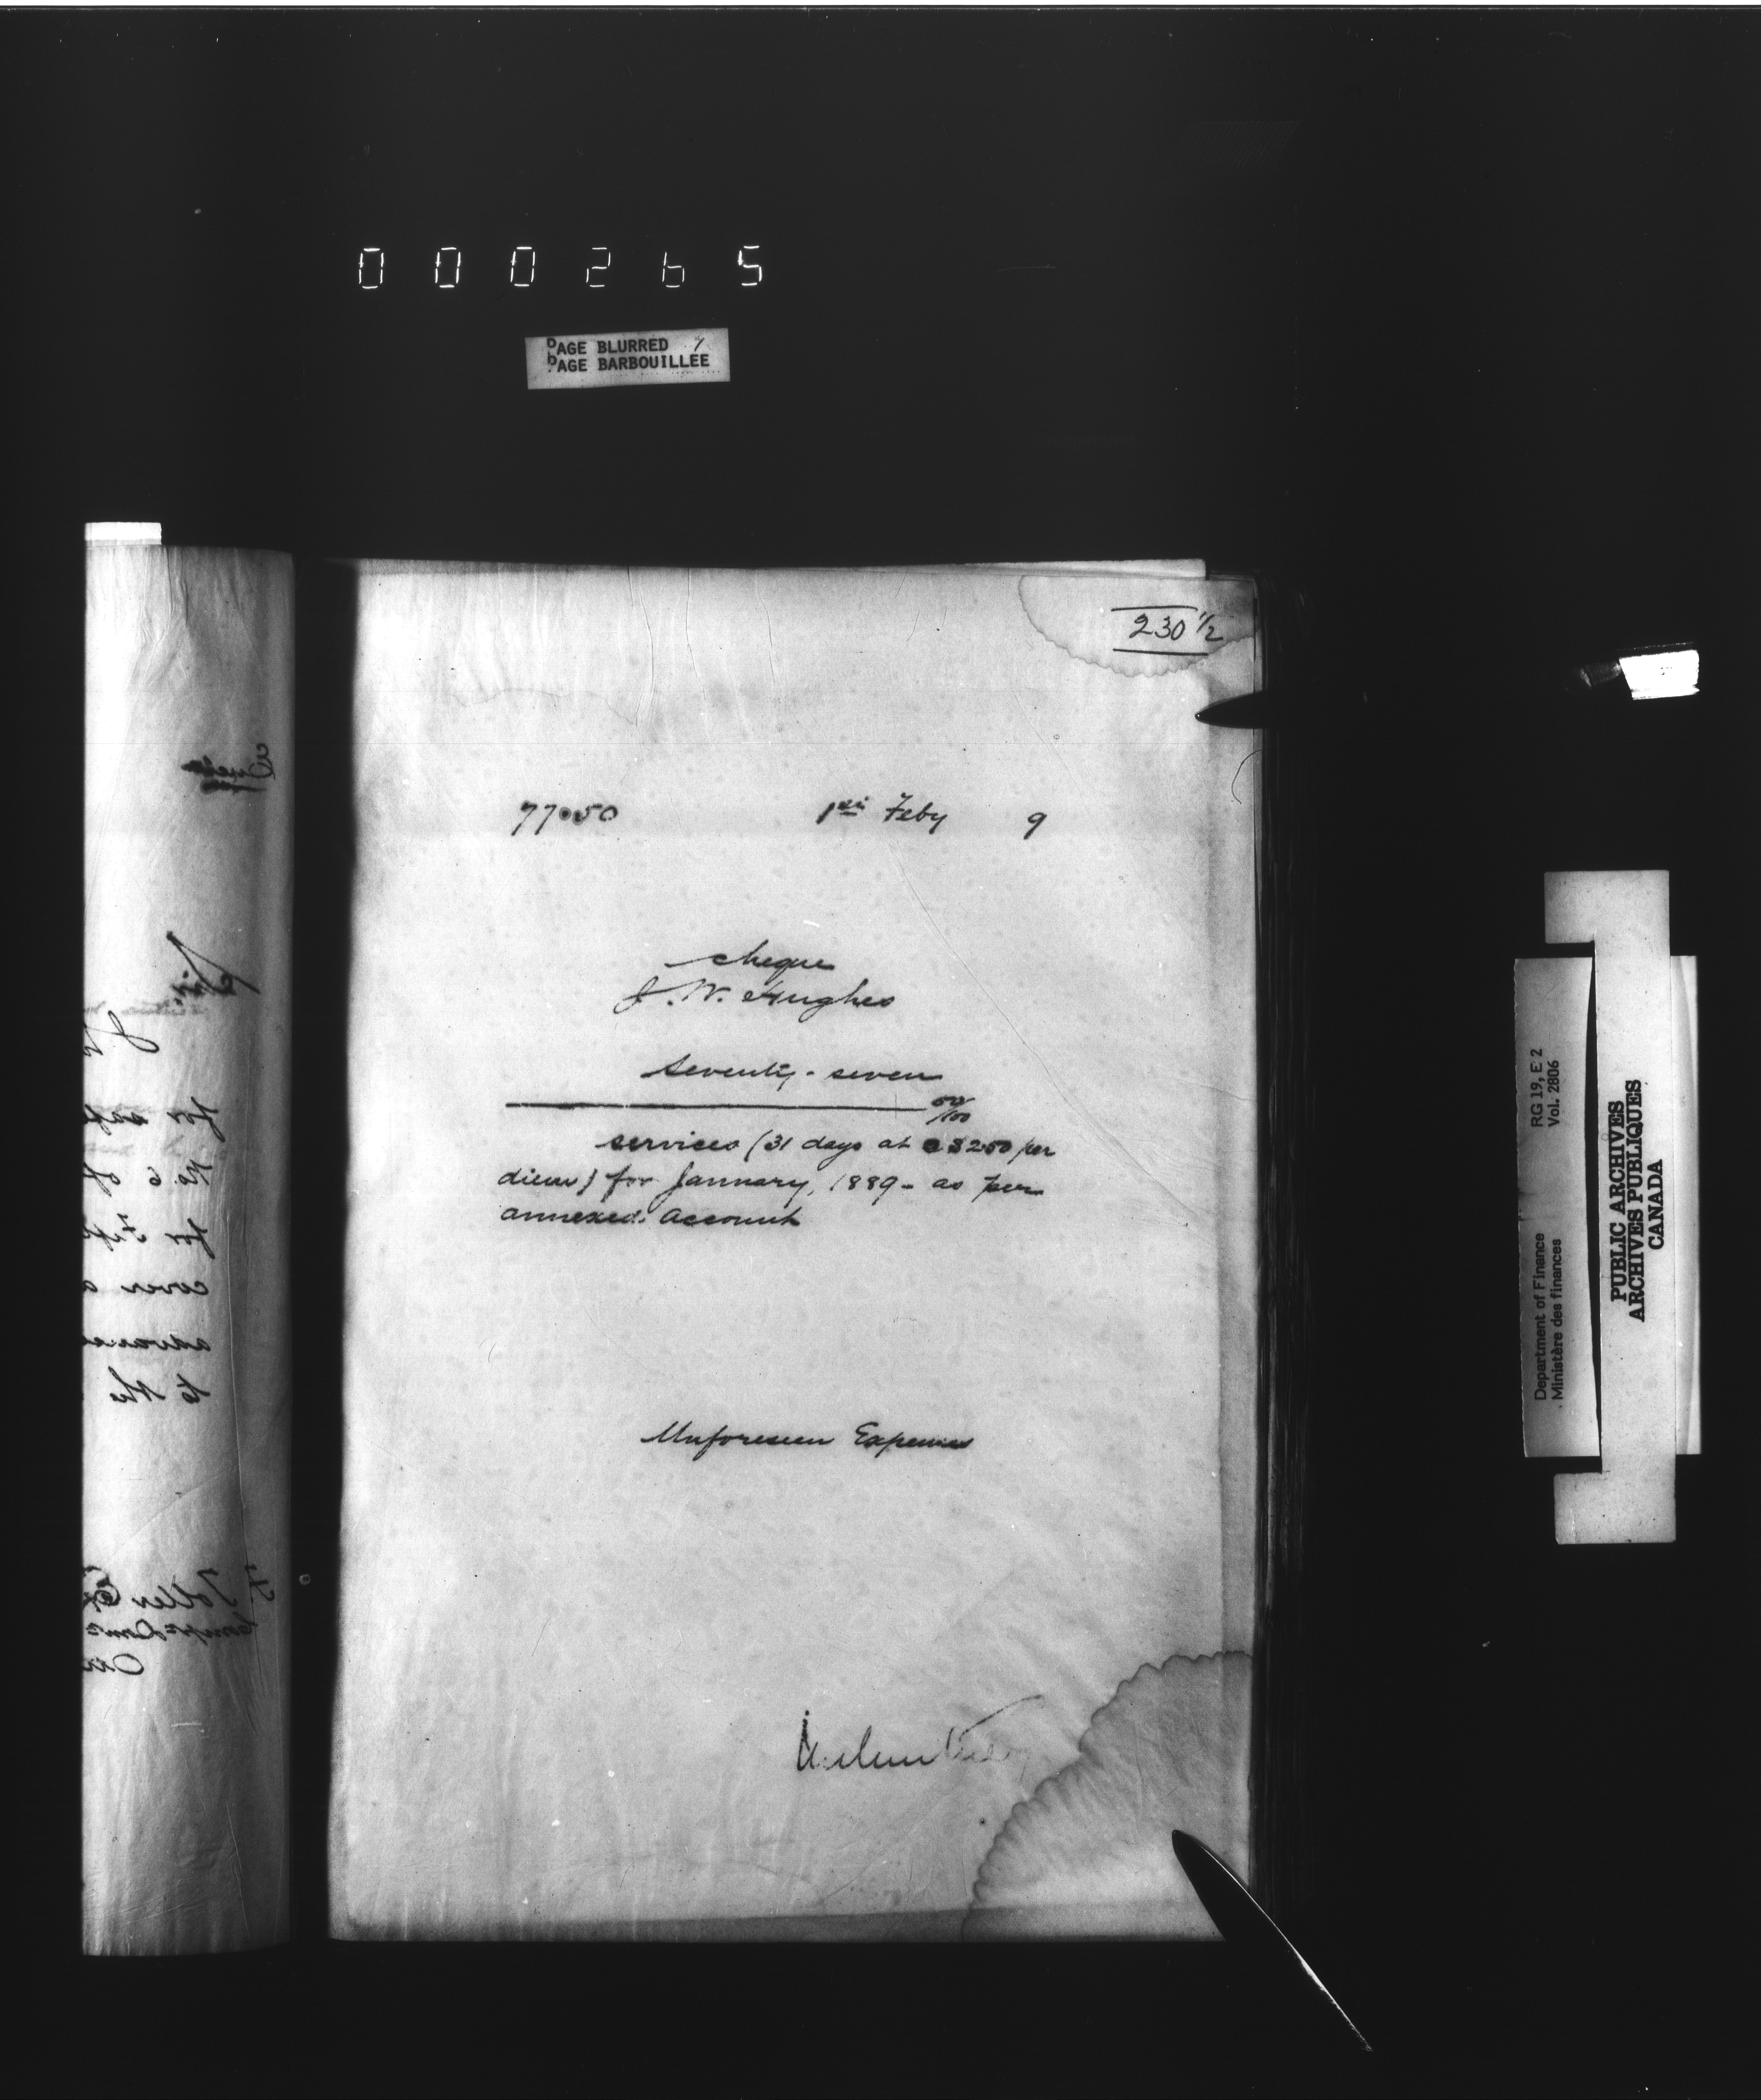 000265
PAGE BLURRED
PAGE BARBOUILLEE
230 1/2
77.50 1st Feby 9
cheque
J. W. Hughes
Seventy-seven
50/100
services (31 days at $2.50 per
diem) for January, 1889 - as per
annexed account
Unforeseen Expenses
Sir
I
for
No 6 of
for
cover a
to the
Toller
RG 19, E 2
Vol. 2806
Department of Finance
Ministère des finances
PUBLIC ARCHIVES
ARCHIVES PUBLIQUES
CANADA